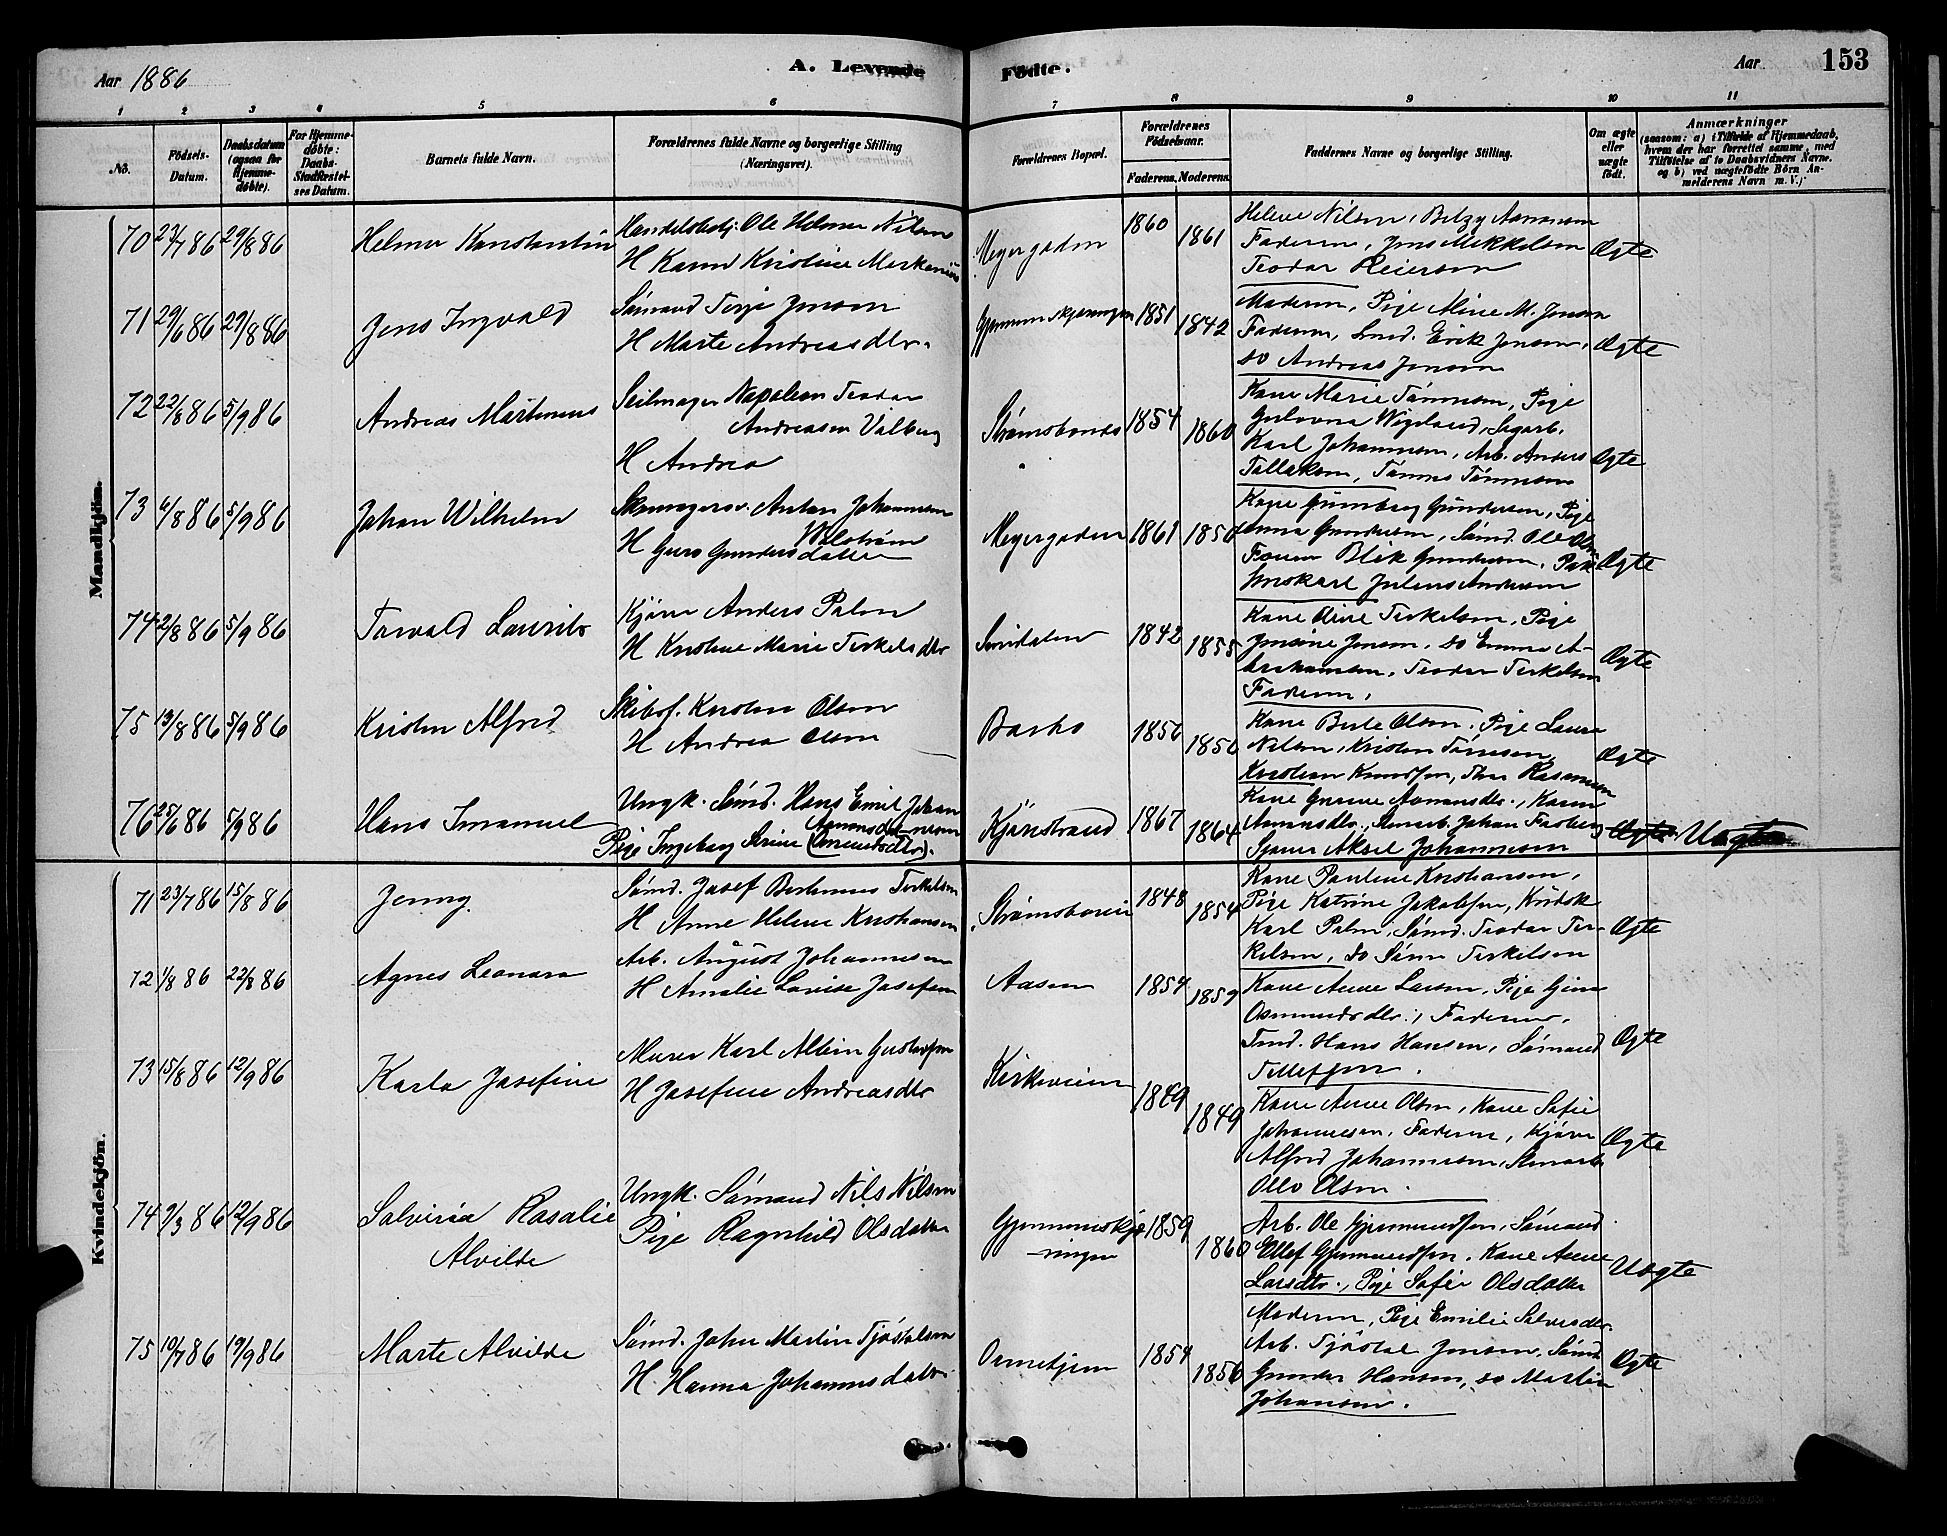 Aar 1886
A. Levende
Födte.
Aar
153
1 2 3 4 5 6 7 8 9 10 11
No.
Födsels-
Datum.
Daabsdatum
(ogsaa for
Hjemme-
döbte).
For Hjemme-
döbte:
Daabs-
Stadfæstel-
ses Datum.
Barnets fulde Navn.
Forældrenes fulde Navne og borgerlige Stilling
(Næringsvei).
Forældrenes Bopæl.
Forældrenes
Födselsaar.
Faderens. Moderens.
Faddernes Navne og borgerlige Stilling.
Om ægte
eller
uægte
födt.
Anmærkninger
(saasom: a) i Tilfælde af Hjemmedaab,
hvem der har forrettet samme, med
Tilföielse af to Daabsvidners Navne,
og b) ved uægtefödte Börn An-
melderens Navn m. V.)
Mandkjön.
70 23/7 86 29/8 86
Helmer Konstantin
Handelsbetj. Ole Helmer Nilsen
H Karen Kristine
Meyergaden
1860
1861
Helene Nilsen, Betzy Aanensen
Faderen, Jens Mikkelsen
Teodor Reiersen
Ægte
71 29/6 86 29/8 86
Jens Ingvald
Sömand Terje Jensen
H Marte Andreasdtr.
1851
1842
Moderen, Pige Aline M. Jensen
Faderen, Smd. Erik Jensen,
do Andreas Jensen
Ægte
72 22/8 86 5/9 86
Andreas Martinius
Seilmager Napoleon Teodor
Andreasen Valberg
H Andrea
Strömsbonds
1854
1860
Kone Marie Tönnesen, Pige
Wigeland, Sagarb.
Karl Johannesen, Arb. Anders
Tallaksen, Tönnes Tönnesen
Ægte
73 6/8 86 5/9 86
Johan Wilhelm
Skomagersv. Anton Johannesen
Walström
H Guro Gundersdatter
Meyergaden
1861
1850
Kone Gunborg Gundersen, Pige
Anna Gundersen, Sömd. Ole Olsen
Gundersen
Julius Andersen
Ægte
74 2/8 86 5/9 86
Torvald Laurits
Kjörer Anders Palm
H Kristine Marie Terkelsdtr
1842
1855
Kone Aline Terkelsen, Pige
Jensine Jensen, do Emma A-
brahamsen, Teodor Terkelsen
Faderen,
Ægte
75 13/8 86 5/9 86
Kristen Alfred
Skibsf. Kristen Olsen
H Andrea Olsen
Barbo
1856
1856
Kone Berte Olsen, Pige Laura
Nilsen, Kristen Tönnesen
Kristian Knudsen, Thor Rasmussen
Ægte
76 25/6 86 5/9 86
Hans Imanuel
Ungk. Sömd. Hans Emil Johan-
nesen
Pige Ingeborg Serine
Kjönstrand
1867
1864
Kone Gunne Aanonsdtr., Karen
Aanonsdtr., Stenarb. Johan Forberg
Aksel Johannesen
Ægte Uægte
Kvindekjön.
71 23/7 86 15/8 86
Jenny
Sömd. Josef Terkelsen
H Anne Helene Kristiansen
Strömsboveien
1848
1854
Kone Pauline Kristiansen,
Pige Katrine Jakobsen,
Karl Palm, Sömd. Teodor Ter-
kelsen, do Sören Terkelsen
Ægte
72 1/8 86 22/8 86
Agnes Leonora
Arb. August Johannesen
H Amalie Lovise Josefsen
Aasen
1854
1859
Kone Anne Larsen, Pige Gina
Osmundsdtr., Faderen,
Tmd. Hans Hansen, Sömand
Tellefsen.
Ægte
73 15/8 86 12/9 86
Karla Josefine
Murer Karl Albin Gustafsen
H Josefine Andreasdtr
Kirkeveien
1849
1849
Kone Anne Olsen, Kone Sofie
Johannesen, Faderen, Kjörer
Alfred Johannesen, Stenarb.
Otto Olsen.
Ægte
74 9/3 86 12/9 86
Salvina Rosalie
Alvilde
Ungk. Sömand Nils Nilsen
Pige Ragnhild Olsdatter
1859
1860
Arb. Ole Gjermundsen, Sömand
Ellef Gjermundsen, Kone Anne
Larsdtr., Pige Sofie Olsdatter
Uægte
75 10/7 86 19/9 86
Marte Alvilde
Sömd. John Martin Tjöstelsen
H Hanna Johannesdatter
1854
1856
Moderen, Pige Emilie Salvesdtr.
Arb. Tjöstel Jensen, Sömd.
Gunder Hansen, do Martin
Johansen.
Ægte